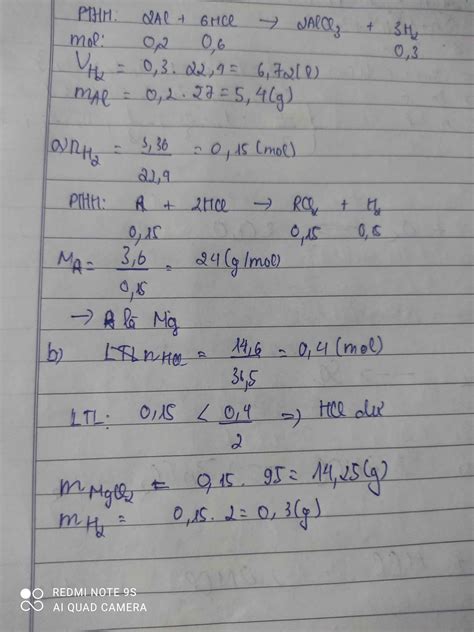 PTHH: 2Al + 6HCl → 2AlCl₃ + 3H₂
mol: 0,2 0,6 0,3
V_H₂ = 0,3 . 22,4 = 6,72(l)
m_Al = 0,2 . 27 = 5,4(g)
a) n_H₂ = 3,36/22,4 = 0,15(mol)
PTHH: R + 2HCl → RCl₂ + H₂
0,15 0,15 0,15
M_R = 3,6/0,15 = 24(g/mol)
→ R là Mg
b) LTL n_HCl = 14,6/36,5 = 0,4(mol)
LTL: 0,15 < 0,4/2 => HCl dư
m_MgCl₂ = 0,15 . 95 = 14,25(g)
m_H₂ = 0,15 . 2 = 0,3(g)
REDMI NOTE 9S
AI QUAD CAMERA